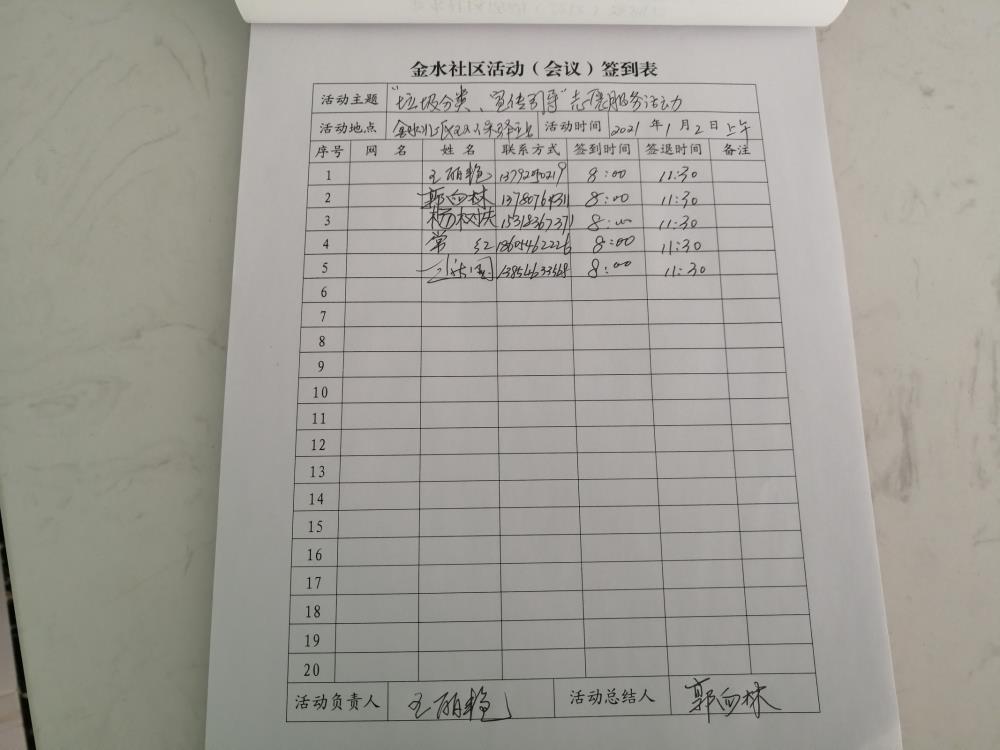 金水社区活动（会议）签到表
活动主题 "垃圾分类、宣传引导"志愿服务活动
活动地点 金水社区 活动时间 2021 年 1 月 2 日 上午
序号 网 名 姓 名 联系方式 签到时间 签退时间 备注
1 王丽艳 1379290219 8:00 11:30
2 郭向林 13780764311 8:00 11:30
3 15318367371 8:00 11:30
4 常 红 18605462226 8:00 11:30
5 13854633568 8:00 11:30
6
7
8
9
10
11
12
13
14
15
16
17
18
19
20
活动负责人 王丽艳 活动总结人 郭向林